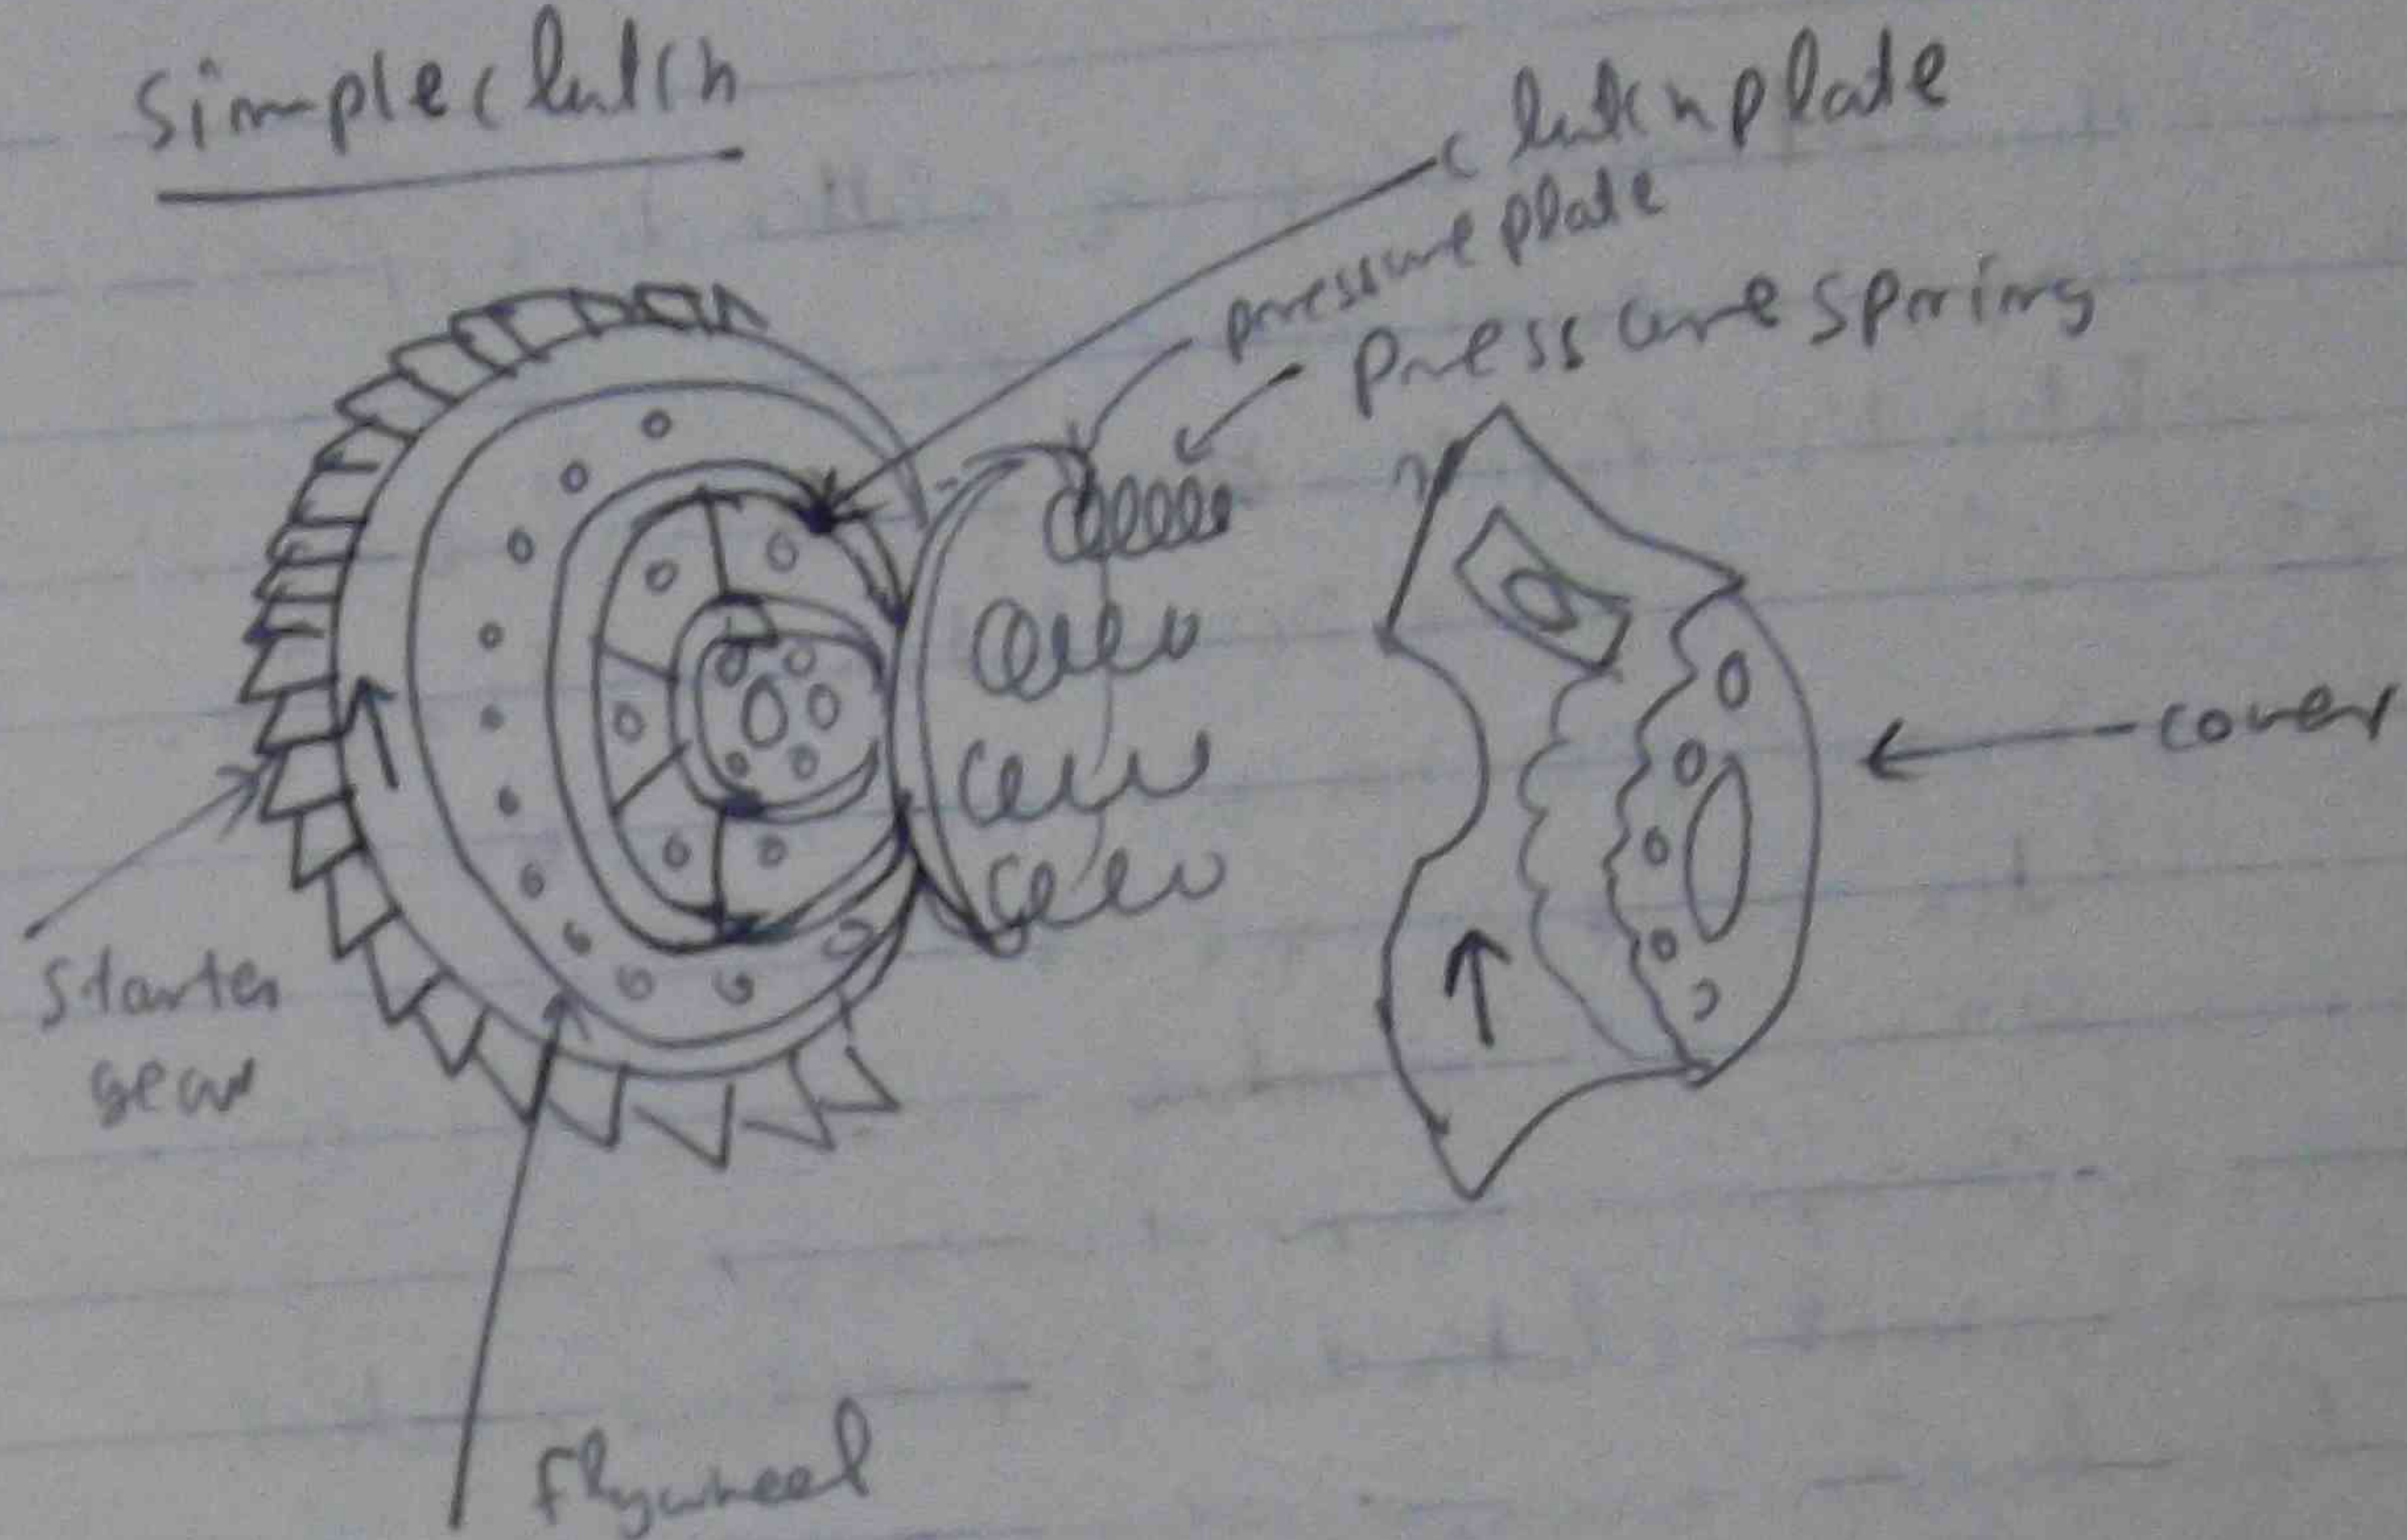 Simple clutch
clutch plate
pressure plate
pressure spring
cover
starter
gear
flywheel